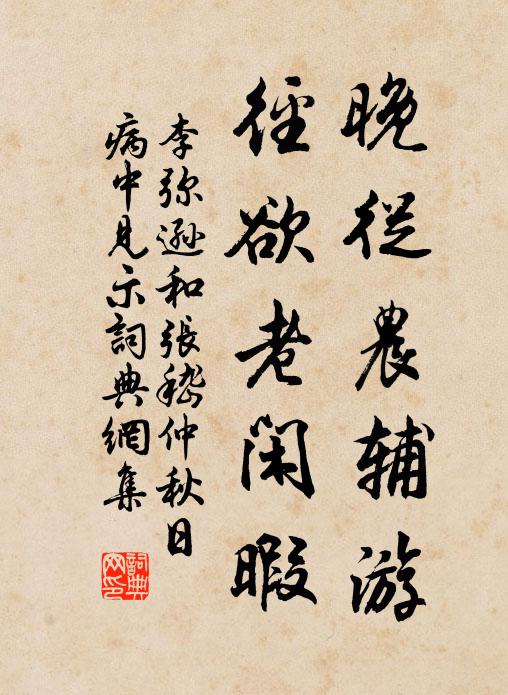 晚從農輔游
徑欲老閑暇
李彌遜和張嵇仲秋日
病中見示詞典網集
詞典
网印